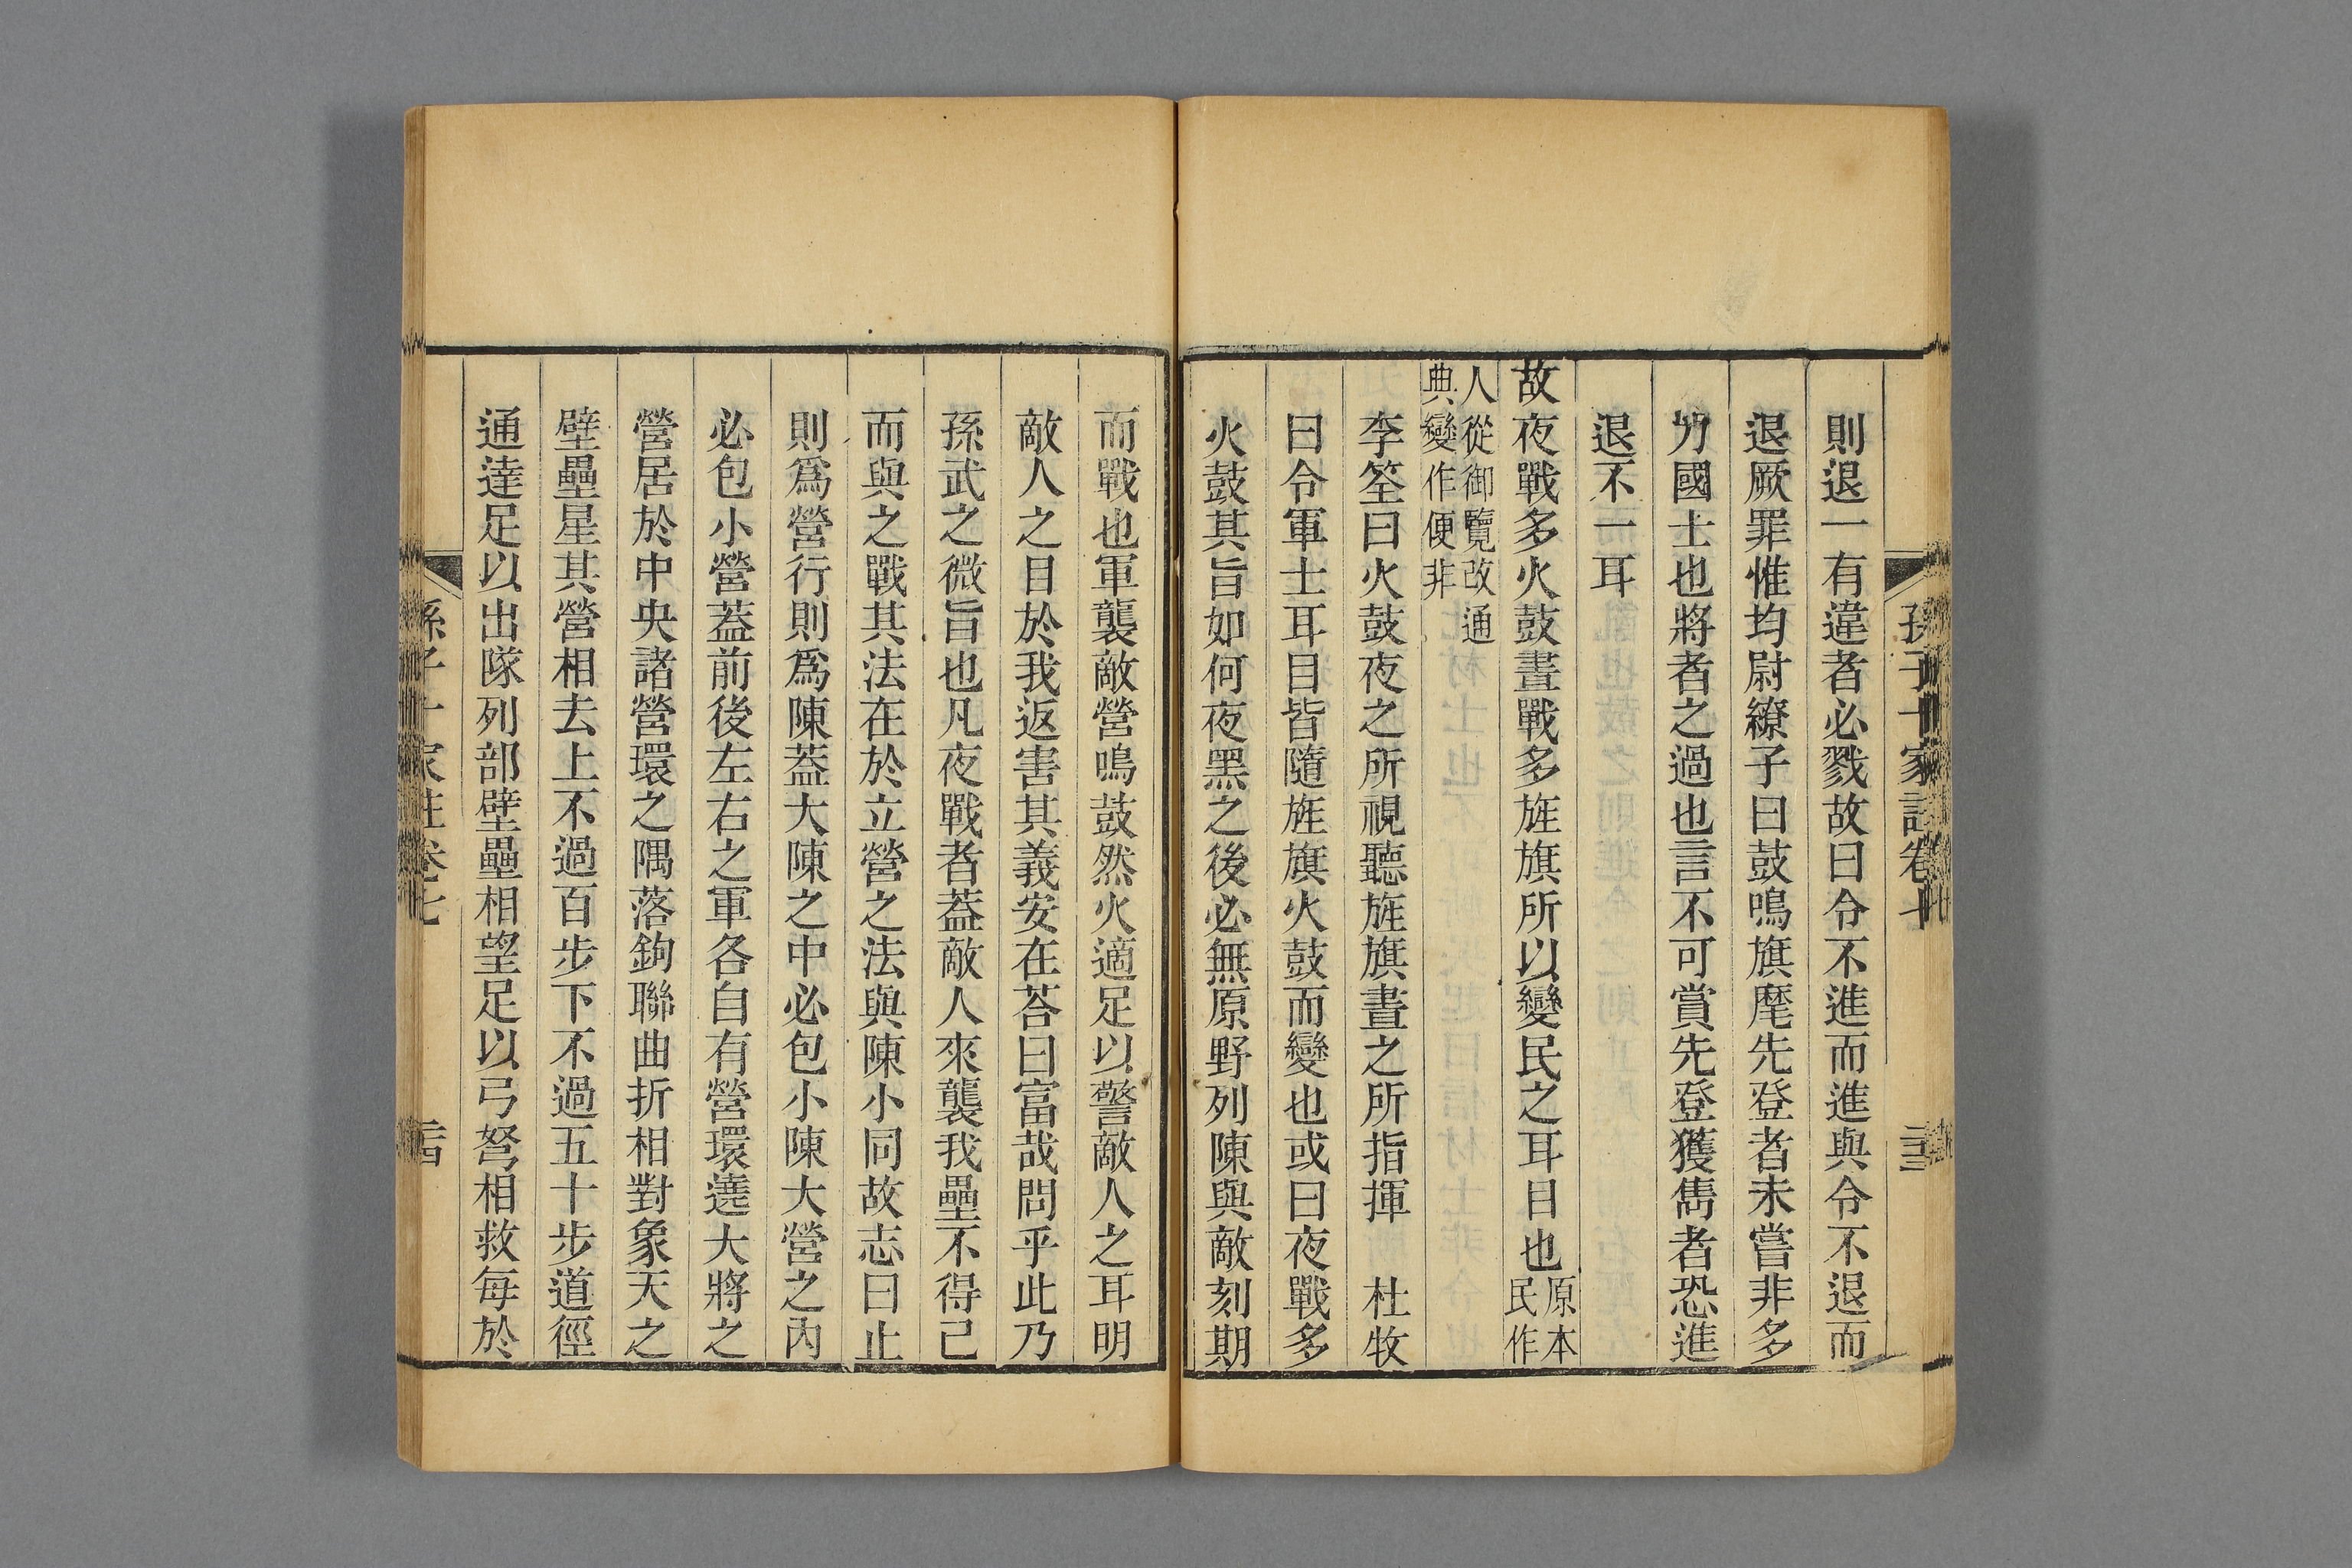 孫子十家註卷七
則退一有違者必戮故曰令不進而進與令不退而
退厥罪惟均尉繚子曰鼓鳴旗麾先登者未嘗非多
力國士也將者之過也言不可賞先登獲雋者恐進
退不一耳
故夜戰多火鼓晝戰多旌旗所以變民之耳目也原本
民作
人從御覽改通
典變作便非
李筌曰火鼓夜之所視聽旌旗晝之所指揮 杜牧
曰令軍士耳目皆隨旌旗火鼓而變也或曰夜戰多
火鼓其旨如何夜黑之後必無原野列陳與敵刻期
而戰也軍襲敵營鳴鼓然火適足以警敵人之耳明
敵人之目於我返害其義安在荅曰富哉問乎此乃
孫武之微旨也凡夜戰者蓋敵人來襲我壘不得已
而與之戰其法在於立營之法與陳小同故志曰止
則爲營行則爲陳蓋大陳之中必包小陳大營之內
必包小營蓋前後左右之軍各自有營環遶大將之
營居於中央諸營環之隅落鉤聯曲折相對象天之
壁壘星其營相去上不過百步下不過五十步道徑
通達足以出隊列部壁壘相望足以弓弩相救每於
孫子十家註卷七